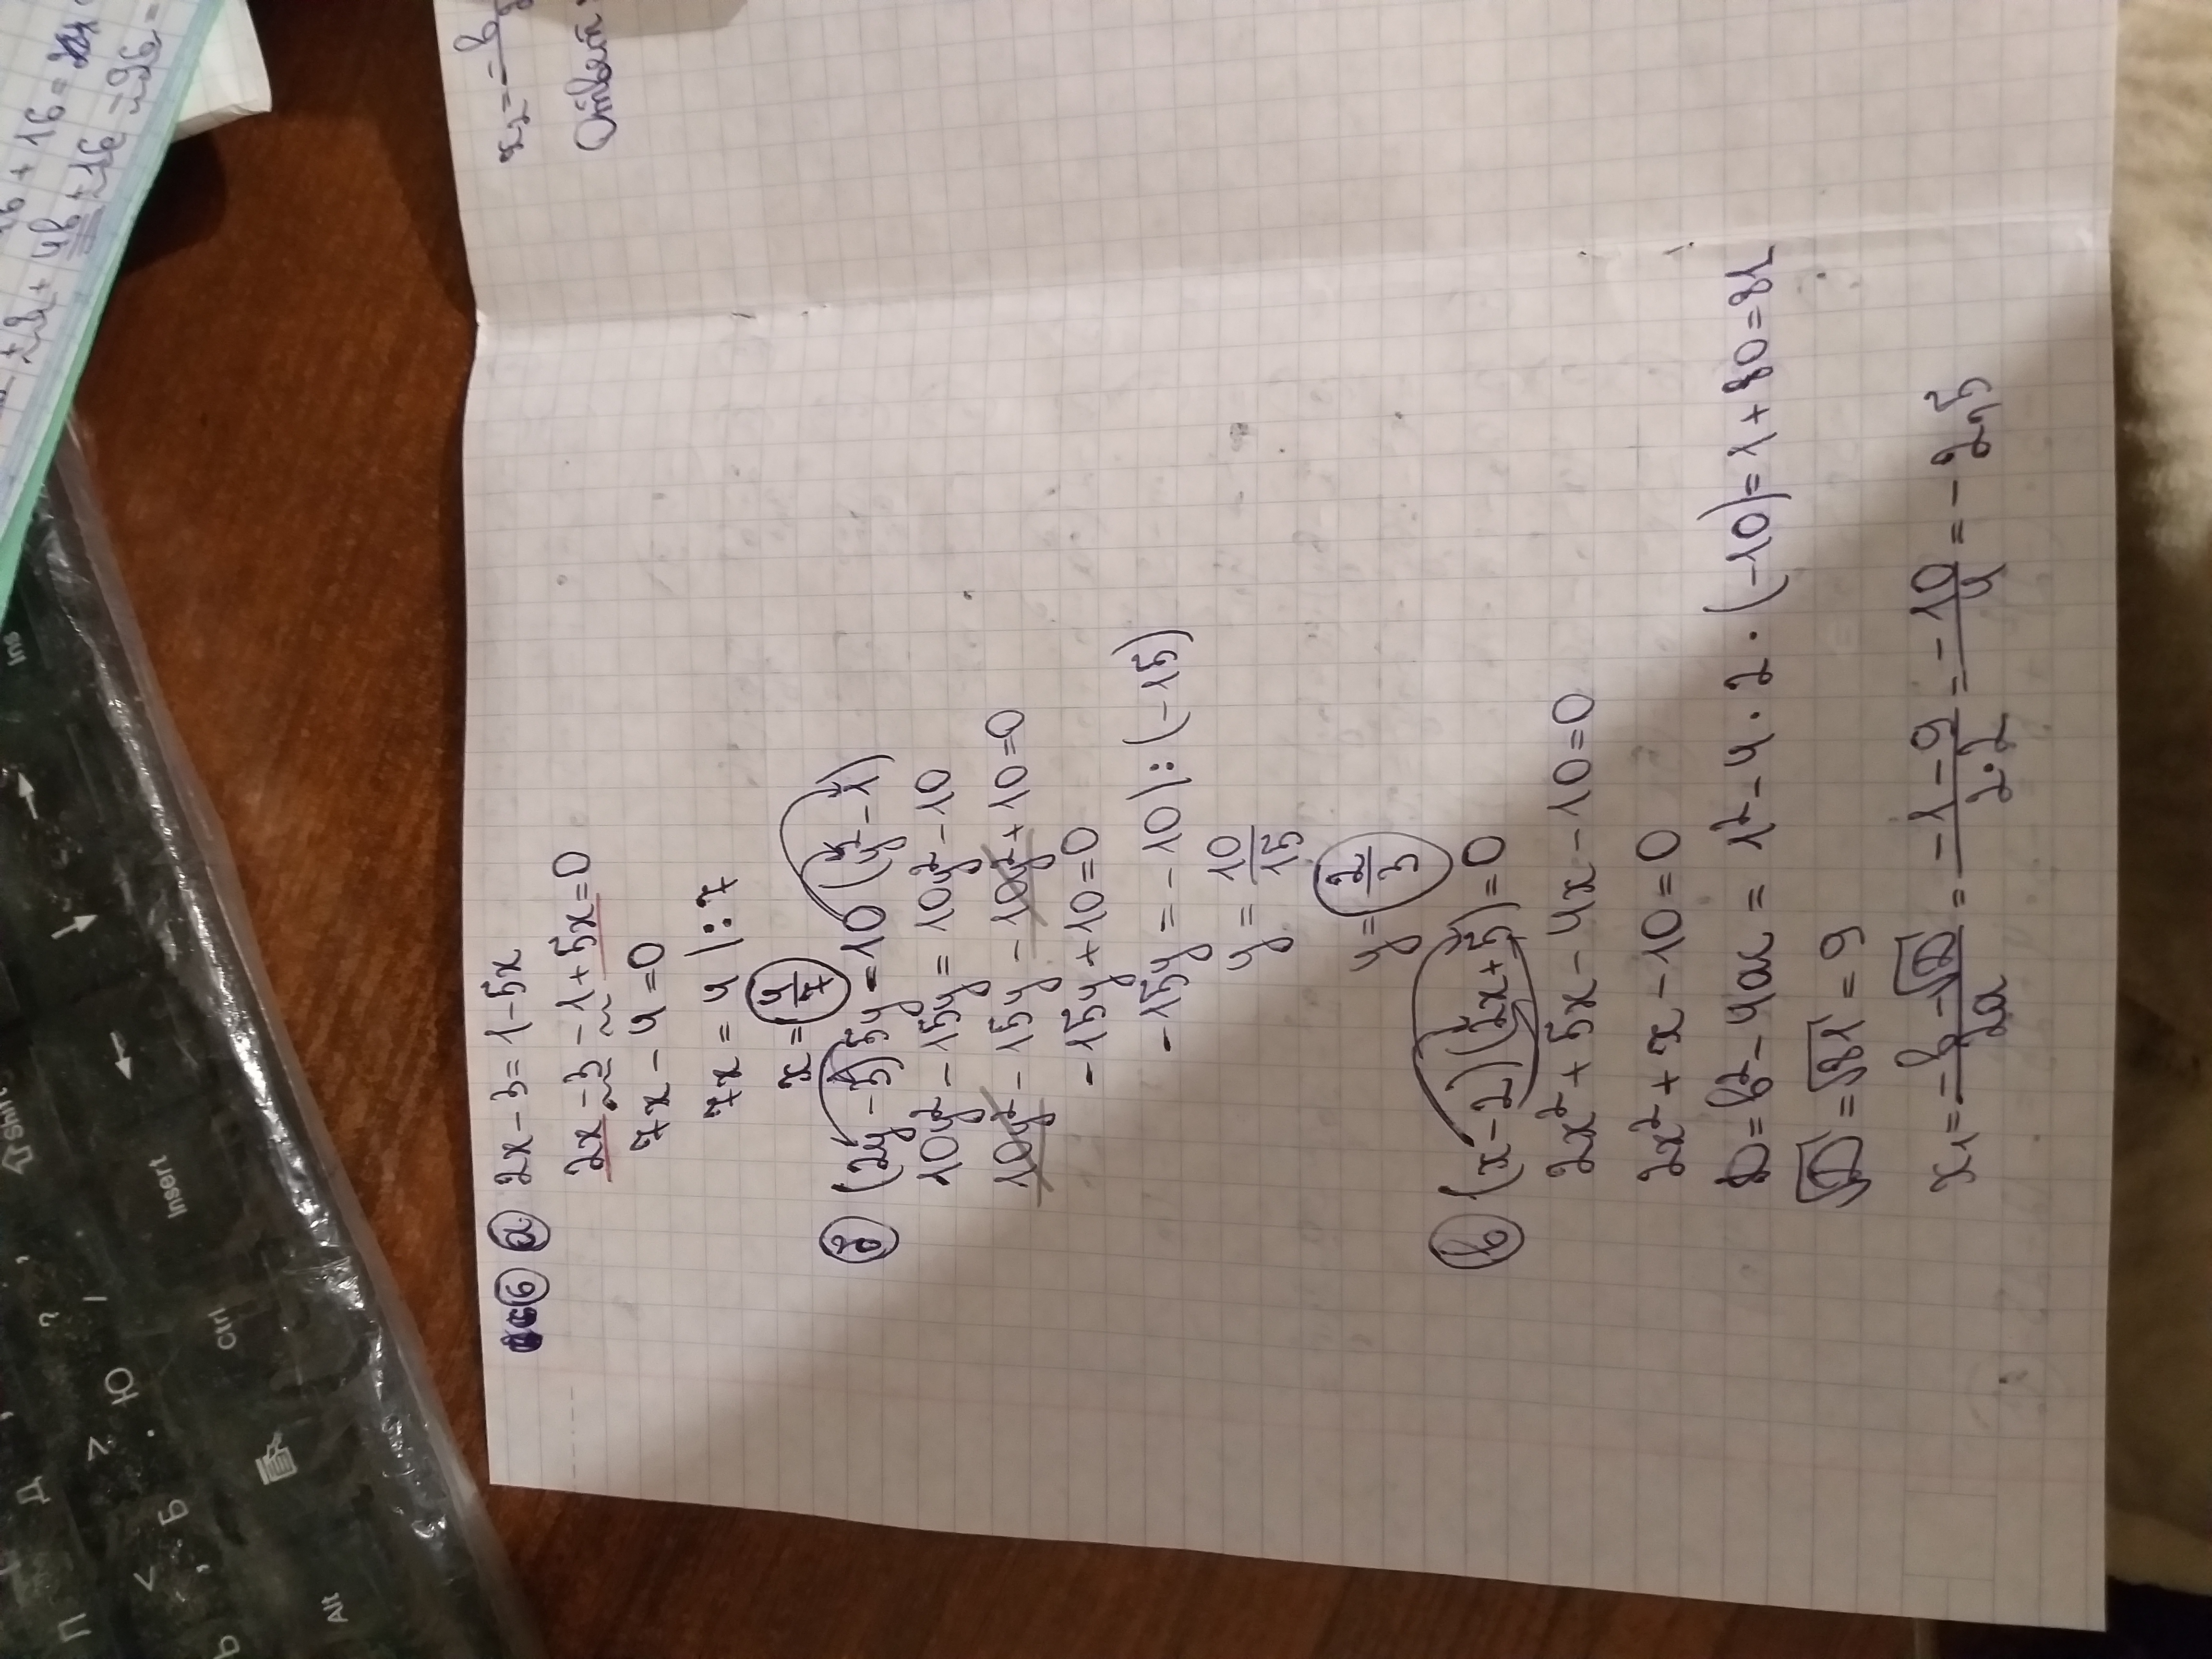 6 а) 2x - 3 = 1 - 5x
2x - 3 - 1 + 5x = 0
7x - 4 = 0
7x = 4 | : 7
x = 4/7
б) (2y - 3) 5y = 10 (y² - 1)
10y² - 15y = 10y² - 10
10y² - 15y - 10y² + 10 = 0
-15y + 10 = 0
-15y = -10 | : (-15)
y = 10/15
y = 2/3
в) (x - 2)(2x + 5) = 0
2x² + 5x - 4x - 10 = 0
2x² + x - 10 = 0
D = b² - 4ac = 1² - 4 · 2 · (-10) = 1 + 80 = 81
√D = √81 = 9
x₁ = (-b - √D)/2a = (-1 - 9)/(2·2) = -10/4 = -2,5
x₂ = -b
Ответ:
+ 16 =
+ 4b + 16
Ins
Shift
Insert
Ctrl
Alt
?
Д
Ю
Б
П
Ь